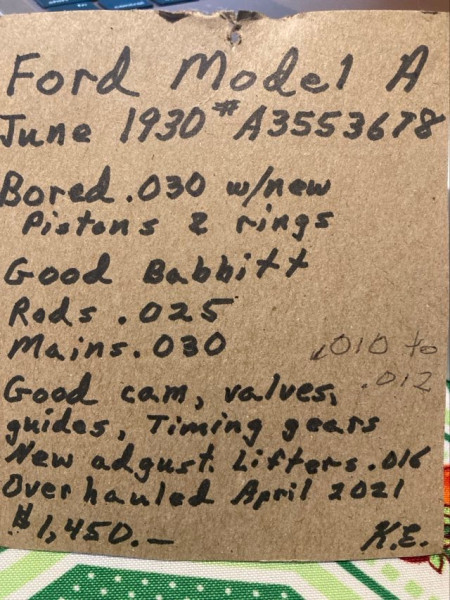 Ford Model A
June 1930 # A3553678
Bored .030 w/new
Pistons & rings
Good Babbitt
Rods .025
Mains .030
.010 to
.012
Good cam, valves,
guides, Timing gears
New adgust. Lifters .016
Overhauled April 2021
$1,450.—
K.E.